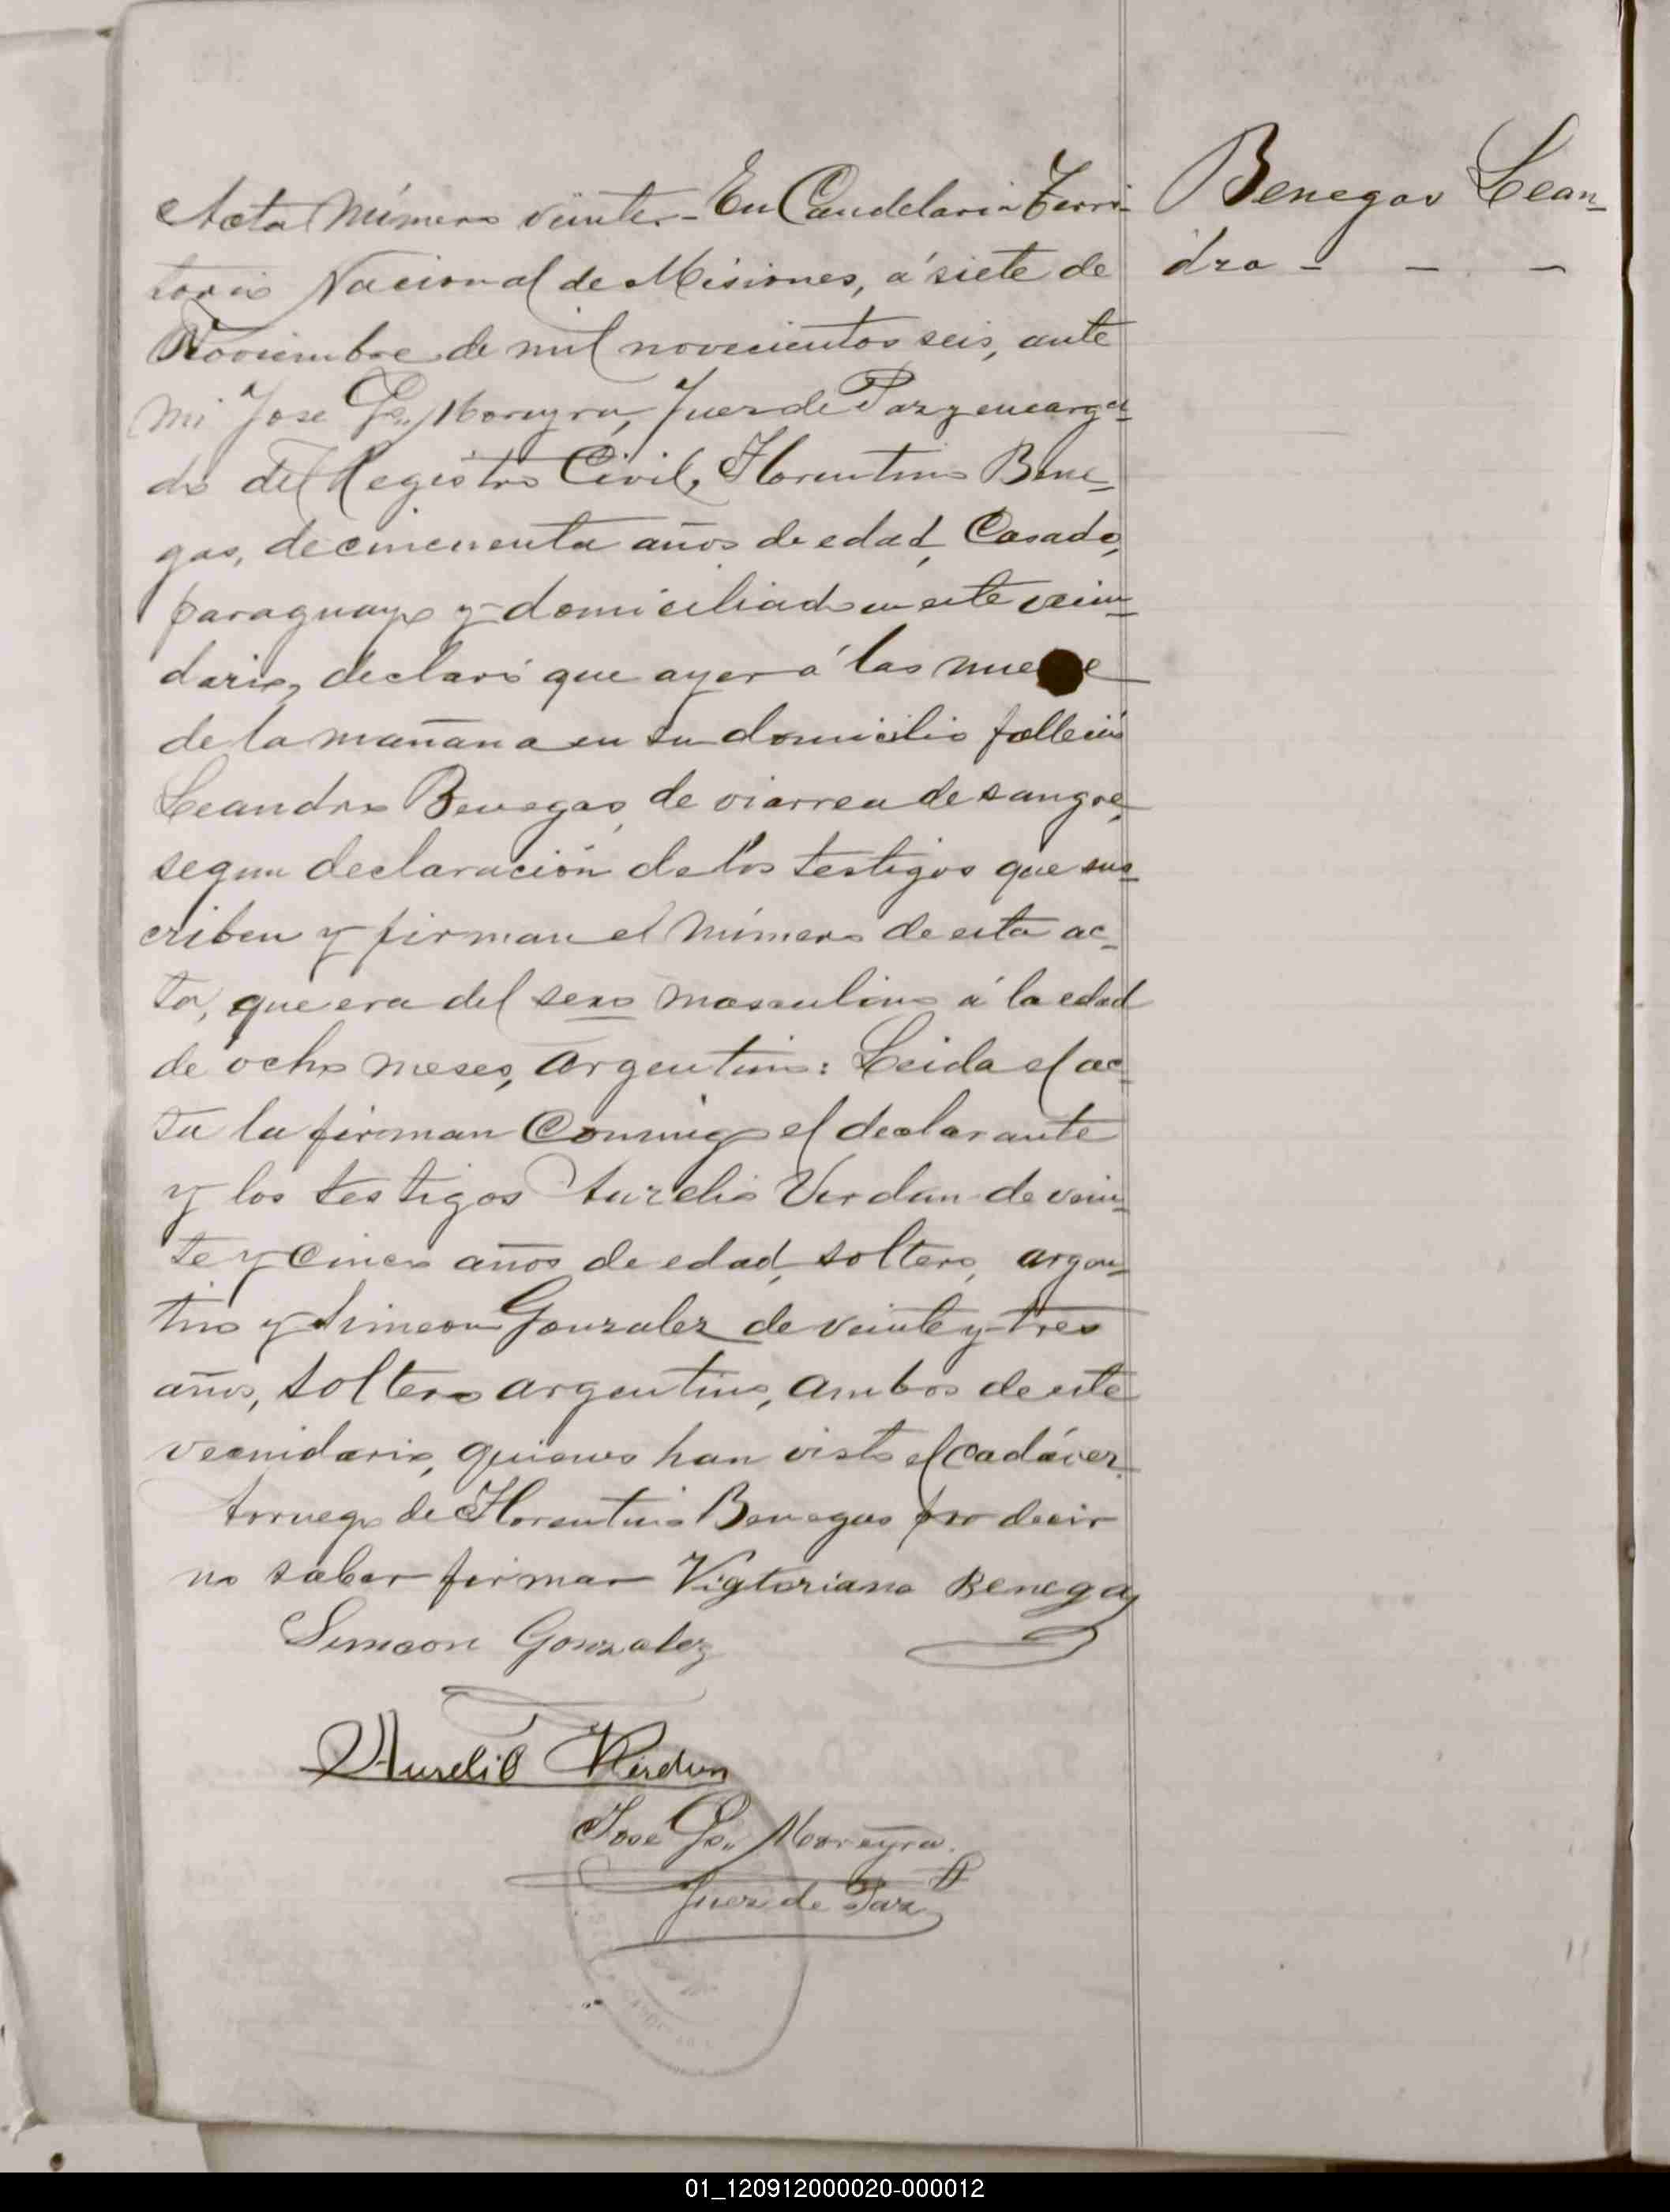 Acta Número veinte.- En Candelaria Terri-
torio Nacional de Misiones, á siete de
Noviembre de mil novecientos seis, ante
mi Jose Gr. Moreyra, Juez de Paz y encarga-
do del Registro Civil, Florentino Bene-
gas, de cincuenta años de edad, Casado,
paraguayo y domiciliado en este vecin-
dario, declaró que ayer á las nueve
de la mañana en su domicilio falleció
Leandro Benegas, de diarrea de sangre,
segun declaración de los testigos que sus-
criben y firman el número de esta ac-
ta, que era del sexo masculino á la edad
de ocho meses, argentino: Leida el ac-
ta la firman Conmigo el declarante
y los testigos Aurelio Verdun de vein-
te y Cinco años de edad, soltero, argen-
tino y Simeon Gonzalez de veinte y tres
años, soltero argentino, ambos de este
vecindario, quienes han visto el cadáver.
A ruego de Florentino Benegas por decir
no saber firmar Vigtoriano Benegas
Simeon Gonzalez
Aurelio Verdun
Jose Gr. Moreyra
Juez de Paz
Benegas Lean-
dro - - -
01_120912000020-000012